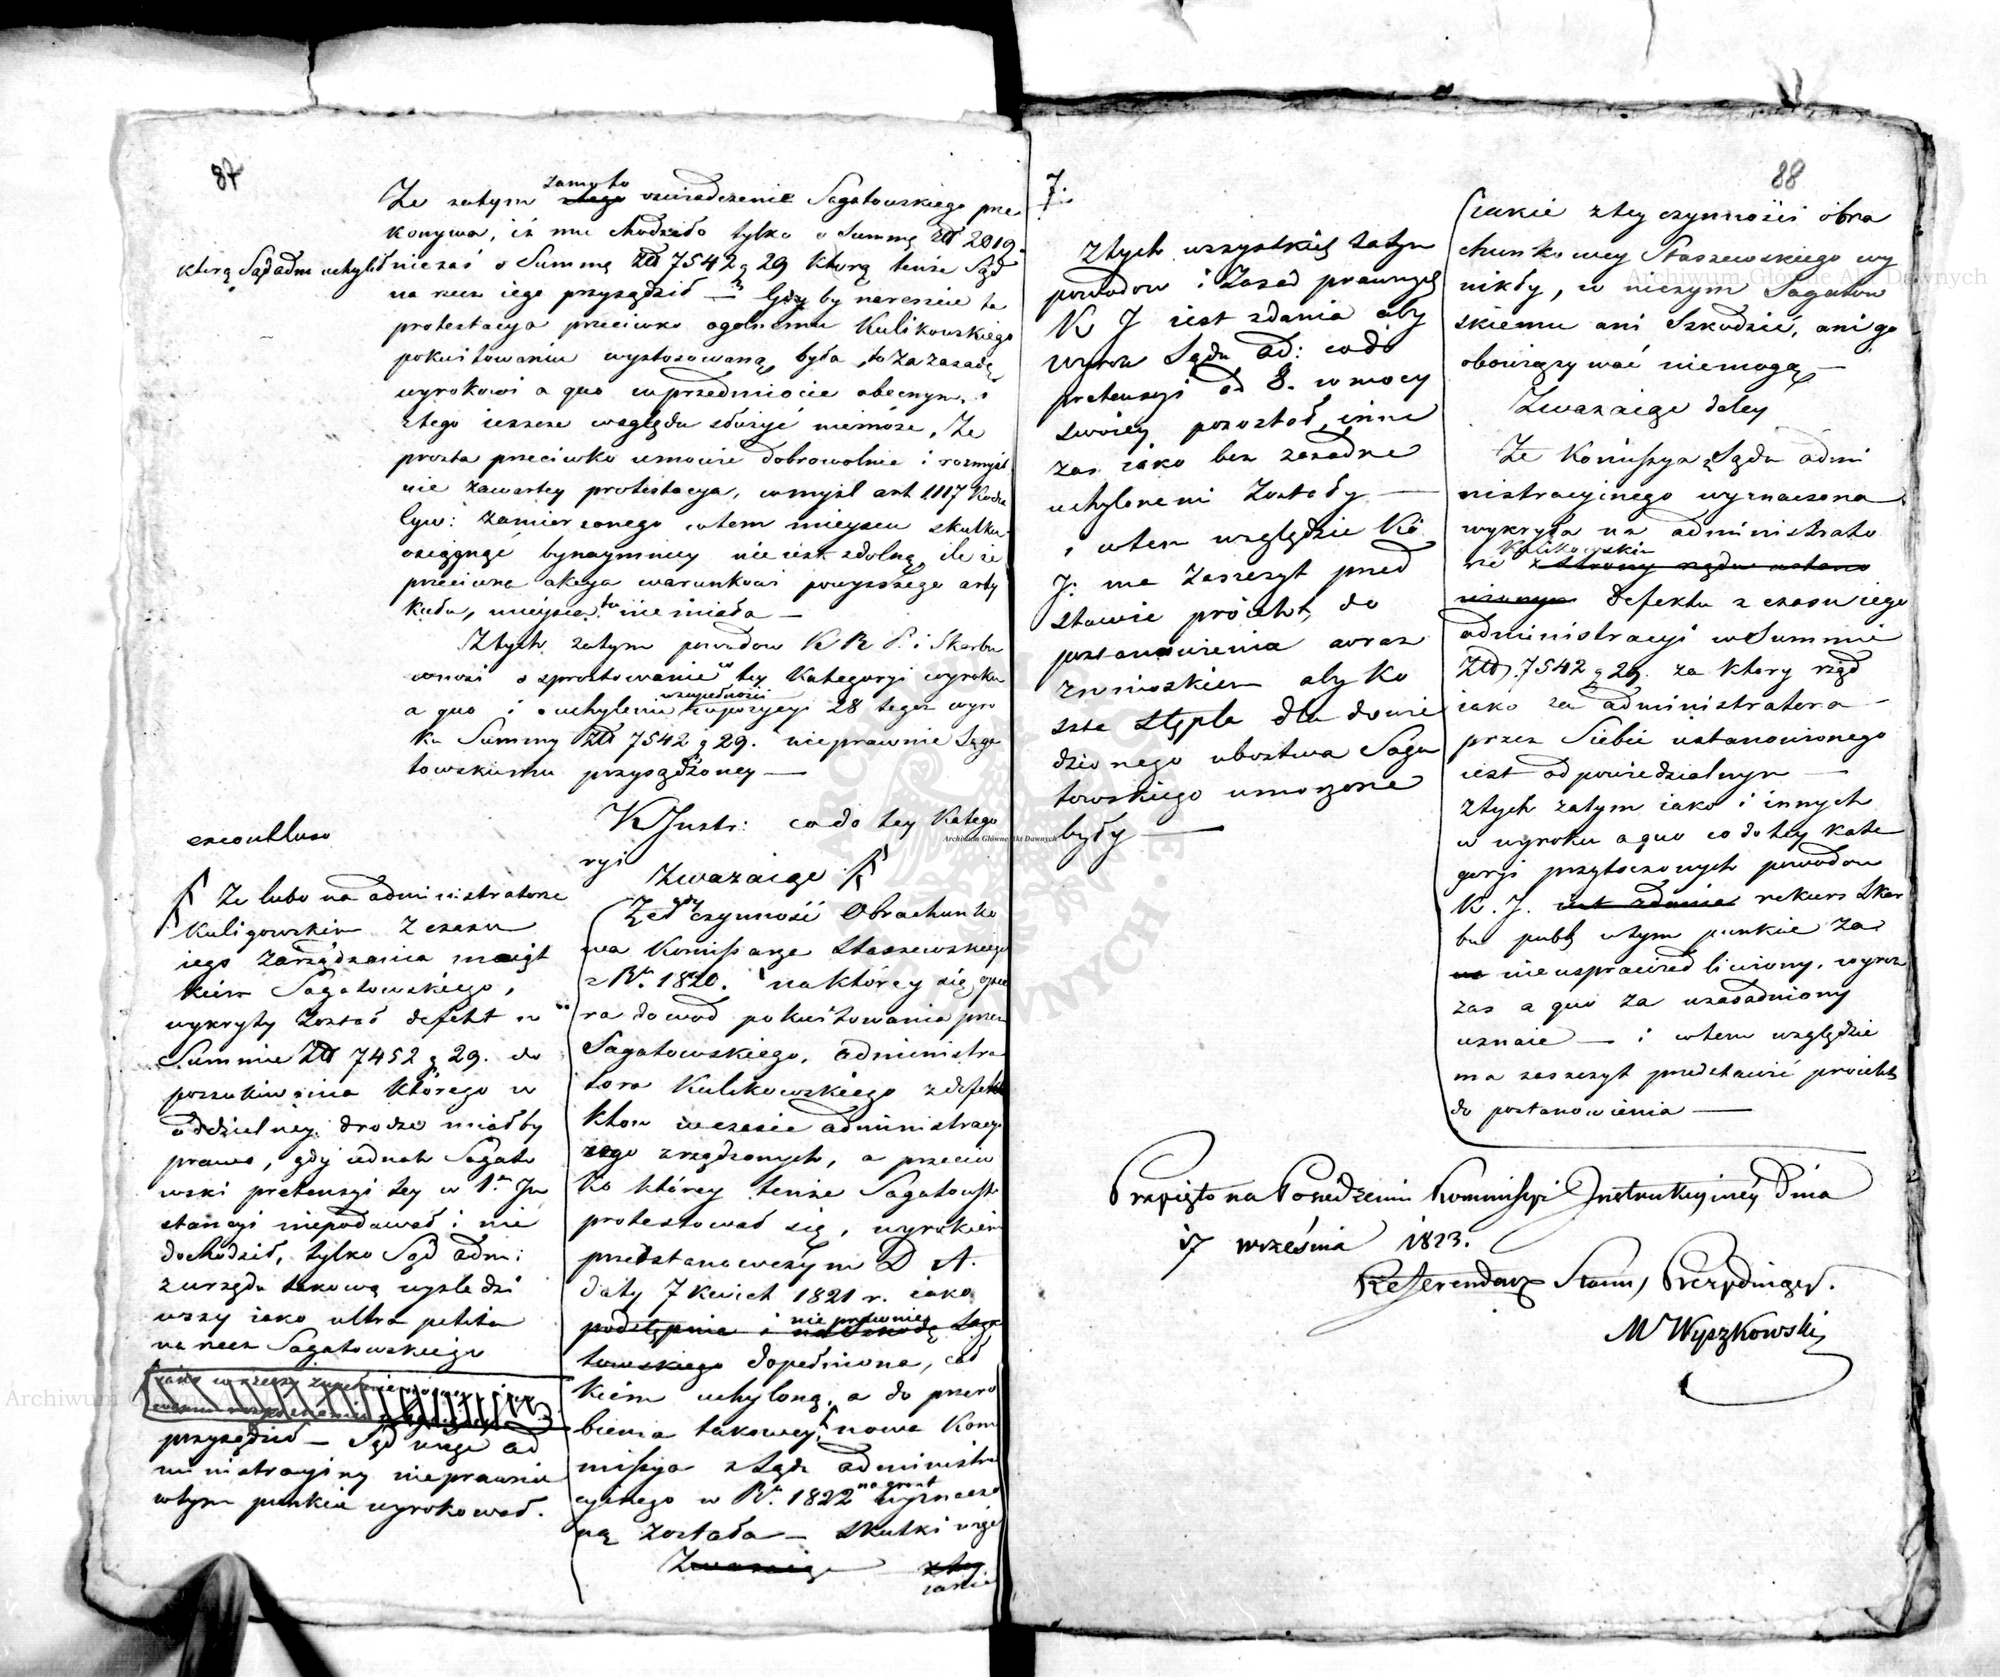 87
Ze zatym samo to oswiadczenie Sagatowskiego prze
konywa, iż nie chodziło tylko o Summę Zł 2019.
którą Sąd adm uchylił nie zaś o Summę Zł 7542 g 29 którą tenże Sąd
na rzecz iego przysądził — Gdy by nareszcie ta
protestacya przeciwko ogolnemu Kulikowskiego
pokwitowaniu wystosowaną była, to za zasadę
wyrokowi a quo w przedmiocie obecnym, i
z tego ieszcze względu służyć niemoże, Ze
prosta przeciwko umowie dobrowolnie i rozmyśl
nie zawartey protestacya, w myśl art 1117 Kodex
Cyw: zamierzonego w tem mieyscu skutku
osięgnąć bynaymniey nie iest zdolną, ile że
przeciwna akcya warunkowi powyższego arty
kułu, mieysca tu nie miała —
Z tych zatym powodow K R P. i Skarbu
wnosi o sprostowanie tey Kategoryi wyroku
a quo i o uchylenie w zupełności 28 tegoż wyro
ku Summy Zł 7542 g 29. nieprawnie Saga
towskiemu przysądzoney —
K Justr: co do tey Katego
ryi
Zwazaiąc
Ze czynność Obrachunko
wa Komissarza Staszewskiego
z Rk. 1820. na którey się opie
ra dowod pokwitowania przez
Sagatowskiego, administra
tora Kulikowskiego z defek
ktow w czasie administracyi
iego zrządzonych, a przeciw
ko którey tenże Sagatowski
protestował się, wyrokiem
przedstanowczym D A.
daty 7 Kwiet 1821 r. iako
podstępnie i na szkodę nieprawnie Saga
towskiego dopełniona, cał
kiem uchyloną, a do przero
bienia takowey nowa Kom
missya z Sądu administra
cyinego w Rk. 1822 na grunt wyznaczo
ną została — skutki więc
Zwazaiąc z tey
iakie
Ze lubo na administratorze
Kuligowskim z czasu
iego zarządzania maiąt
kiem Sagatowskiego,
wykryty został defekt w
Summie Zł 7452 g 29. do
poszukiwania którego w
oddzielney drodze miałby
prawo, gdy iednak Sagato
wski pretensyi tey w 1. In
stancyi niepodawał i nie
dochodził, tylko Sąd adm:
z urzędu takową wysledzi
wszy iako ultra petita
na rzecz Sagatowskiego
przysądził — Sąd więc ad
ministracyiny nieprawnie
w tym punkcie wyrokował.
88
7.
Z tych wszystkich zatym
powodow i zasad prawnych
K J iest zdania aby
wyrok Sądu ad: co do
pretensyi od 8. w mocy
swoiey pozostał, inne
zas iako bez zasadne
uchylonemi zostały —
i w tem względzie Kó
J: ma zaszczyt przed
stawić proiekt, do
postanowienia wraz
z wnioskiem aby ko
szta stępla dla dowie
dzionego ubostwa Saga
towskiego umorzone
były —
iakie z tey czynności obra
chunkowey Staszewskiego wy
nikły, w niczym Sagatow
skiemu ani szkodzić, ani go
obowiązywać niemogą —
Zwazaiąc daley
Ze Komissya z Sądu admi
nistracyinego wyznaczona
wykryła na administrato
rze Kulikowskim z strony rządu ustano
wionym defektu z czasu iego
administracyi w Summie
Zł. 7542 g 29. za ktory rząd
iako za administratora
przez Siebie ustanowionego
iest odpowiedzialnym —
Z tych zatym iako i innych
w wyroku a quo co do tey kate
goryi przytoczonych powodow
K. J. iest zdania rekurs Skar
bu publ w tym punkcie za
nieusprawiedliwiony, wyrok
zas a quo za uzasadniony
uznaie — i w tem względzie
ma zaszczyt przedstawić proiekt
do postanowienia —
Przyięto na Posiedzeniu Kommissyi Instrukcyiney Dnia
17 września 1823.
Referendarz Stanu, Prezyduiący.
M Wyszkowski